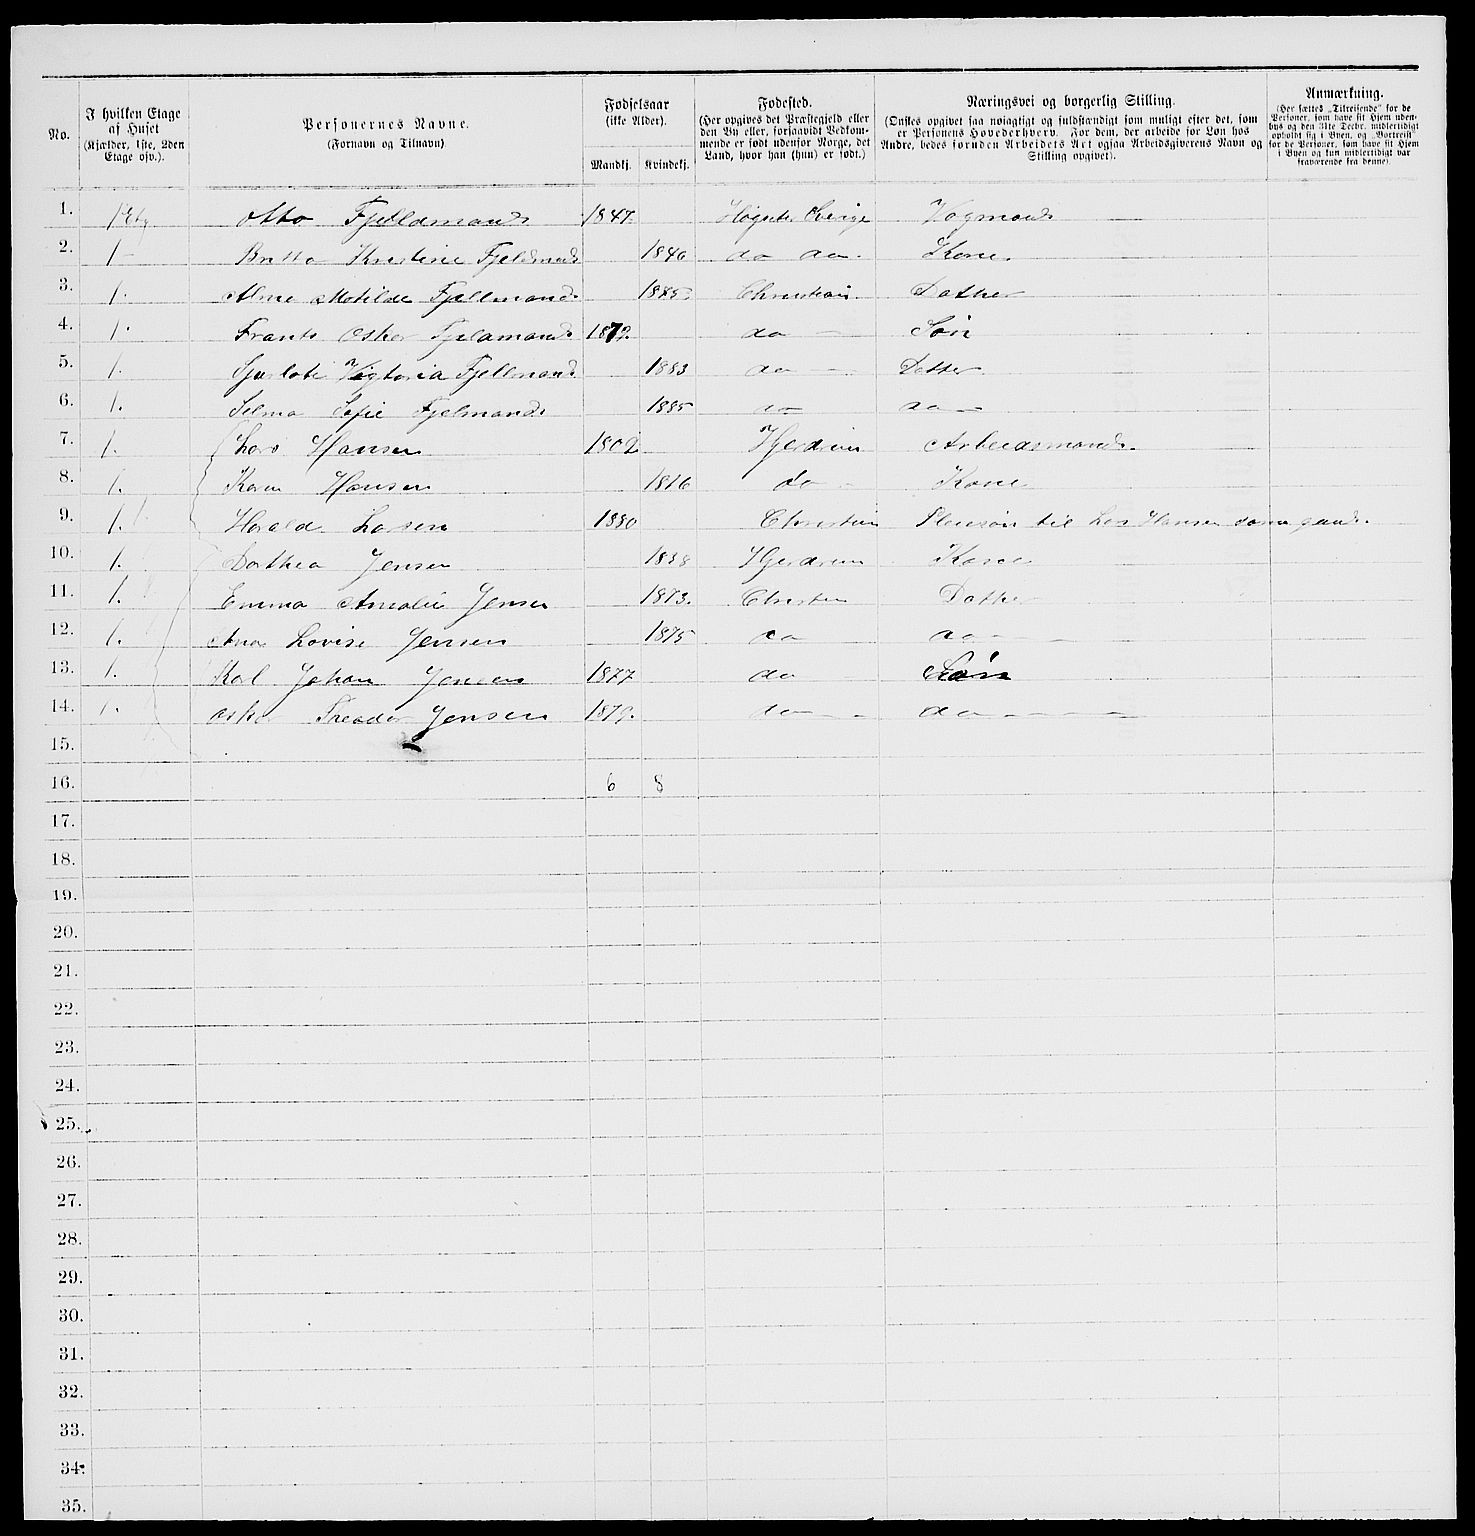 No. I hvilken Etage af Huset (Kjælder, 1ste, 2den Etage osv.). Personernes Navne. (Fornavn og Tilnavn). Fødselsaar (ikke Alder). Mandkj. Kvindekj. Fødested. (Her opgives det Præstegjeld eller den By eller, forsaavidt Vedkommende er født udenfor Norge, det Land, hvor han (hun) er født.) Næringsvei og borgerlig Stilling. (Ønskes opgivet saa nøiagtigt og fuldstændigt som muligt efter det, som er Personens Hovederhverv. For dem, der arbeide for Løn hos Andre, bedes foruden Arbeidets Art ogsaa Arbeidsgiverens Navn og Stilling opgivet). Anmærkning. (Her sættes „Tilreisende" for de Personer, som have sit Hjem udenbys og den 31te Decbr. midlertidigt opholdt sig i Byen, og „Bortreist" for de Personer, som have sit Hjem i Byen og kun midlertidigt var fraværende fra denne).
1. 1 Etg Otto Fjeldmand 1847 Sverige Vogmand
2. 1 Britta Kristine Fjeldmand 1846 do do. Kone.
3. 1. Alma Matilde Fjellmand 1875 Christian. Datter
4. 1. Frants Osker Fjeldmand 1872. do — Søn
5. 1. Sjarlote Vigtoria Fjellmand 1883 do — Datter
6. 1. Selma Sofie Fjelmand 1885 do do
7. 1. Lars Hansen 1802 Hjerdrum Arbeidsmand.
8. 1. Karen Hansen 1816 do Kone
9. 1. Harald Larsen 1880 Christian Pleiesøn til Lars Hansen
10. 1. Dorthea Jensen 1838 Hjerdrum Kone
11. 1. Emma Amalie Jensen 1873. Christian Datter
12. 1. Ana Lovise Jensen 1875 do do —
13. 1. Karl Johan Jensen 1877 do Søn
14. 1. Osker Theodor Jensen 1879. do — do —
15.
16. 6 8
17.
18.
19.
20.
21.
22.
23.
24.
25.
26.
27.
28.
29.
30.
31.
32.
33.
34.
35.